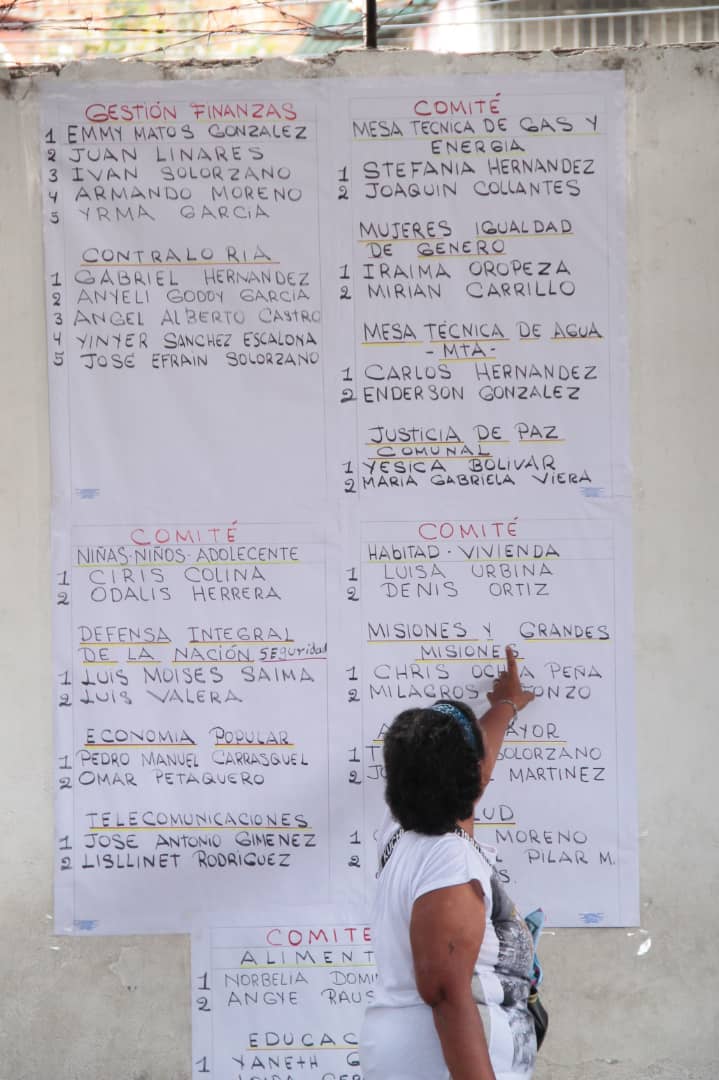 GESTIÓN FINANZAS
1 EMMY MATOS GONZALEZ
2 JUAN LINARES
3 IVAN SOLORZANO
4 ARMANDO MORENO
5 YRMA GARCIA
CONTRALORIA
1 GABRIEL HERNANDEZ
2 ANYELI GODOY GARCIA
3 ANGEL ALBERTO CASTRO
4 YINYER SANCHEZ ESCALONA
5 JOSÉ EFRAIN SOLORZANO
COMITÉ
MESA TECNICA DE GAS Y
ENERGIA
1 STEFANIA HERNANDEZ
2 JOAQUIN COLLANTES
MUJERES IGUALDAD
DE GENERO
1 IRAIMA OROPEZA
2 MIRIAN CARRILLO
MESA TÉCNICA DE AGUA
- MTA -
1 CARLOS HERNANDEZ
2 ENDERSON GONZALEZ
JUSTICIA DE PAZ
COMUNAL
1 YESICA BOLIVAR
2 MARIA GABRIELA VIERA
COMITÉ
NIÑAS·NIÑOS·ADOLECENTE
1 CIRIS COLINA
2 ODALIS HERRERA
DEFENSA INTEGRAL
DE LA NACIÓN SEguridad
1 LUIS MOISES SAIMA
2 LUIS VALERA
ECONOMIA POPULAR
1 PEDRO MANUEL CARRASQUEL
2 OMAR PETAQUERO
TELECOMUNICACIONES
1 JOSE ANTONIO GIMENEZ
2 LISLLINET RODRIGUEZ
COMITÉ
HABITAD · VIVIENDA
1 LUISA URBINA
2 DENIS ORTIZ
MISIONES Y GRANDES
MISIONES
1 CHRIS PEÑA
2 MILAGROS
1 SOLORZANO
2 MARTINEZ
1 MORENO
2 PILAR M.
COMITE
ALIMENT
1 NORBELIA DOMI
2 ANGYE RAUS
EDUCAC
1 YANETH G